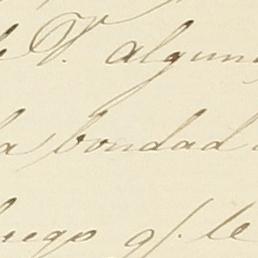 e V. algun
la bondad
luego q/. le